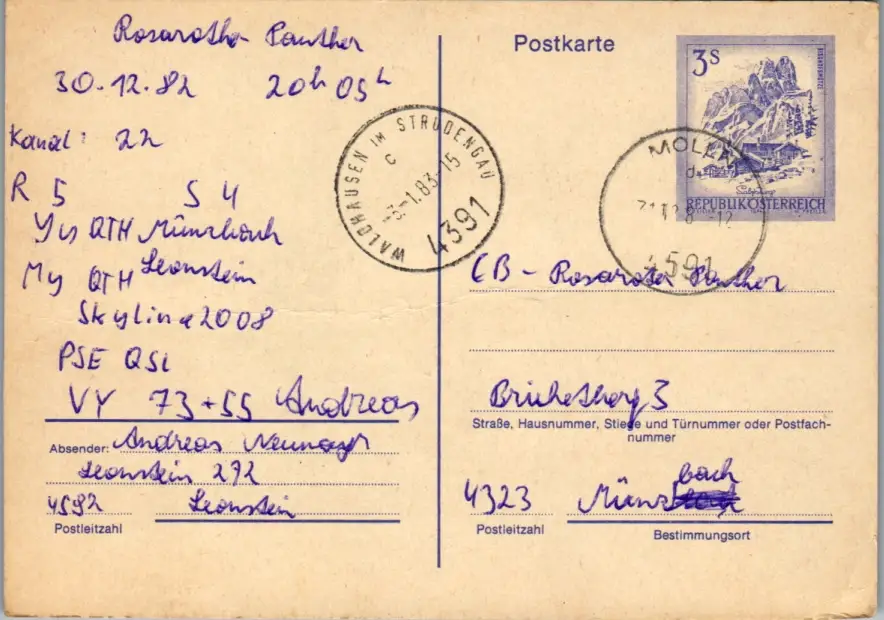 Rosarother Panther
30.12.82 20h 05h
Kanal: 22
R 5 S 4
Yur QTH Münzbach
My QTH Leonstein
Skyline 2008
PSE QSL
VY 73 + 55 Andreas
Absender: Andreas Neumayr
Leonstein 272
4592 Leonstein
Postleitzahl
Postkarte
3S
REPUBLIK ÖSTERREICH
WALDHAUSEN IM STRUDENGAU
C
3-1.83-15
4391
MOLLN
4591
CB - Rosaroter Panther
3
Straße, Hausnummer, Stiege und Türnummer oder Postfach-
nummer
4323 Münzbach
Postleitzahl
Bestimmungsort